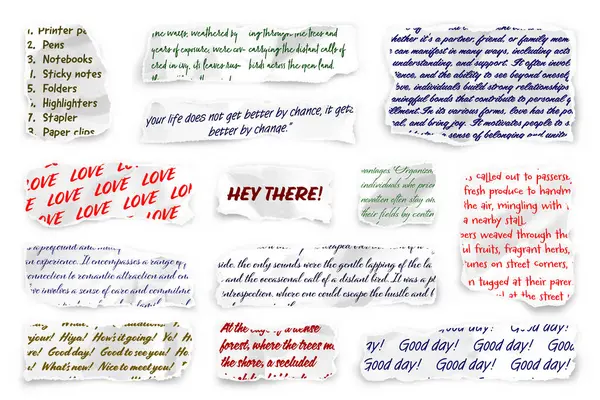 Printer
2. Pens
3. Notebooks
1. Sticky notes
5. Folders
6. Highlighters
7. Stapler
3. Paper clips
the walls, weathered by
years of exposure, were cov
ered in ivy, its leaves rus
ing through the trees and
carrying the distant calls of
birds across the open land.
your life does not get better by chance, it gets
better by change."
whether it's a partner, friend, or family
can manifest in many ways, including acts
understanding, and support. It often involv
ience, and the ability to see beyond oneself
ve, individuals build strong relationships
aningful bonds that contribute to personal g
llment. In its various forms, love has the po
al, and bring joy. It motivates people to s
a sense of belonging and unity
LOVE LOVE LOVE
LOVE LOVE LOVE LOVE
LOVE LOVE LOVE LOVE
LOVE LOVE LOVE
HEY THERE!
vantages Organiza
individuals who prior
novation often stay an
their fields by contin
s called out to passersb
fresh produce to handm
the air, mingling with
a nearby stall.
ers weaved through the
ul fruits, fragrant herbs,
tunes on street corners,
n tugged at their paren
s at the street
profound and
an experience. It encompasses a range of
connection to romantic attraction and em
ve involves a sense of care and commitme
side. the only sounds were the gentle lapping of the la
and the occasional call of a distant bird. It was a p
ntrospection, where one could escape the hustle and b
njour! Hiya! How's it going! Yo! H
ere! Good day! Good to see you! H
! What's new! Nice to meet you!
At the edge of a dense
forest, where the trees m
the shore, a secluded
Good day! Good day!
day! Good day! Good day! Good
Good day! Good day! Good day!